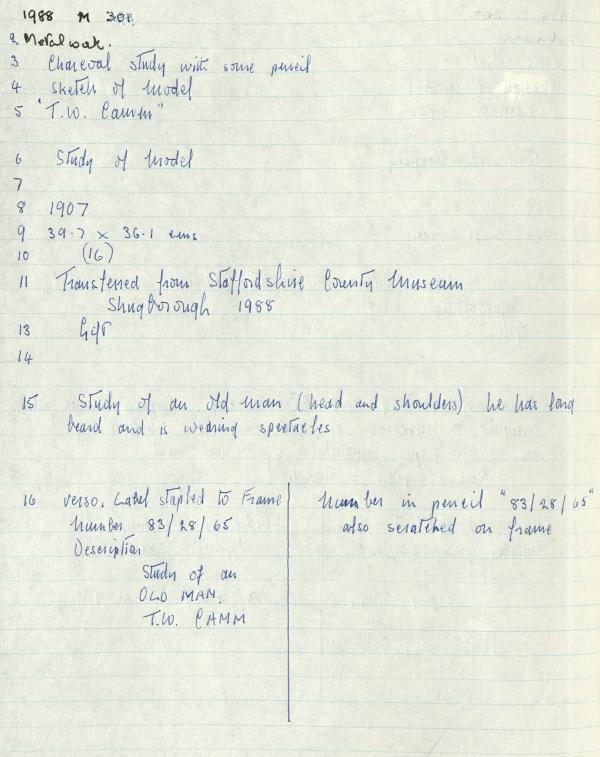 1988 M 301
2 Metalwork.
3 Charcoal study with some pencil
4 sketch of model
5 "T.W. Camm"
6 Study of model
7
8 1907
9 39.7 x 36.1 cms
10 (16)
11 Transferred from Staffordshire County Museum
Shugborough 1988
13 Gift
14
15 Study of an old man (head and shoulders) he has long
beard and is wearing spectacles
16 verso. Label stapled to Frame
Number 83/28/65
Description
Study of an
OLD MAN.
T.W. CAMM
Number in pencil "83/28/65"
also scratched on frame